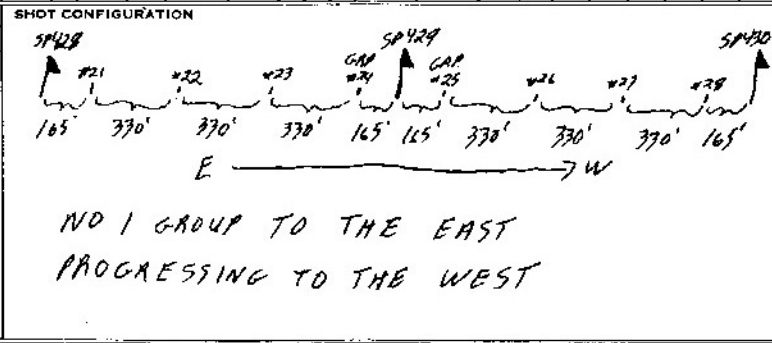 SHOT CONFIGURATION
SP428 SP429 SP430
GRP GAP
#21 #22 #23 #24 #25 #26 #27 #28
165' 330' 330' 330' 165' 165' 330' 330' 330' 165'
E W
NO 1 GROUP TO THE EAST
PROGRESSING TO THE WEST